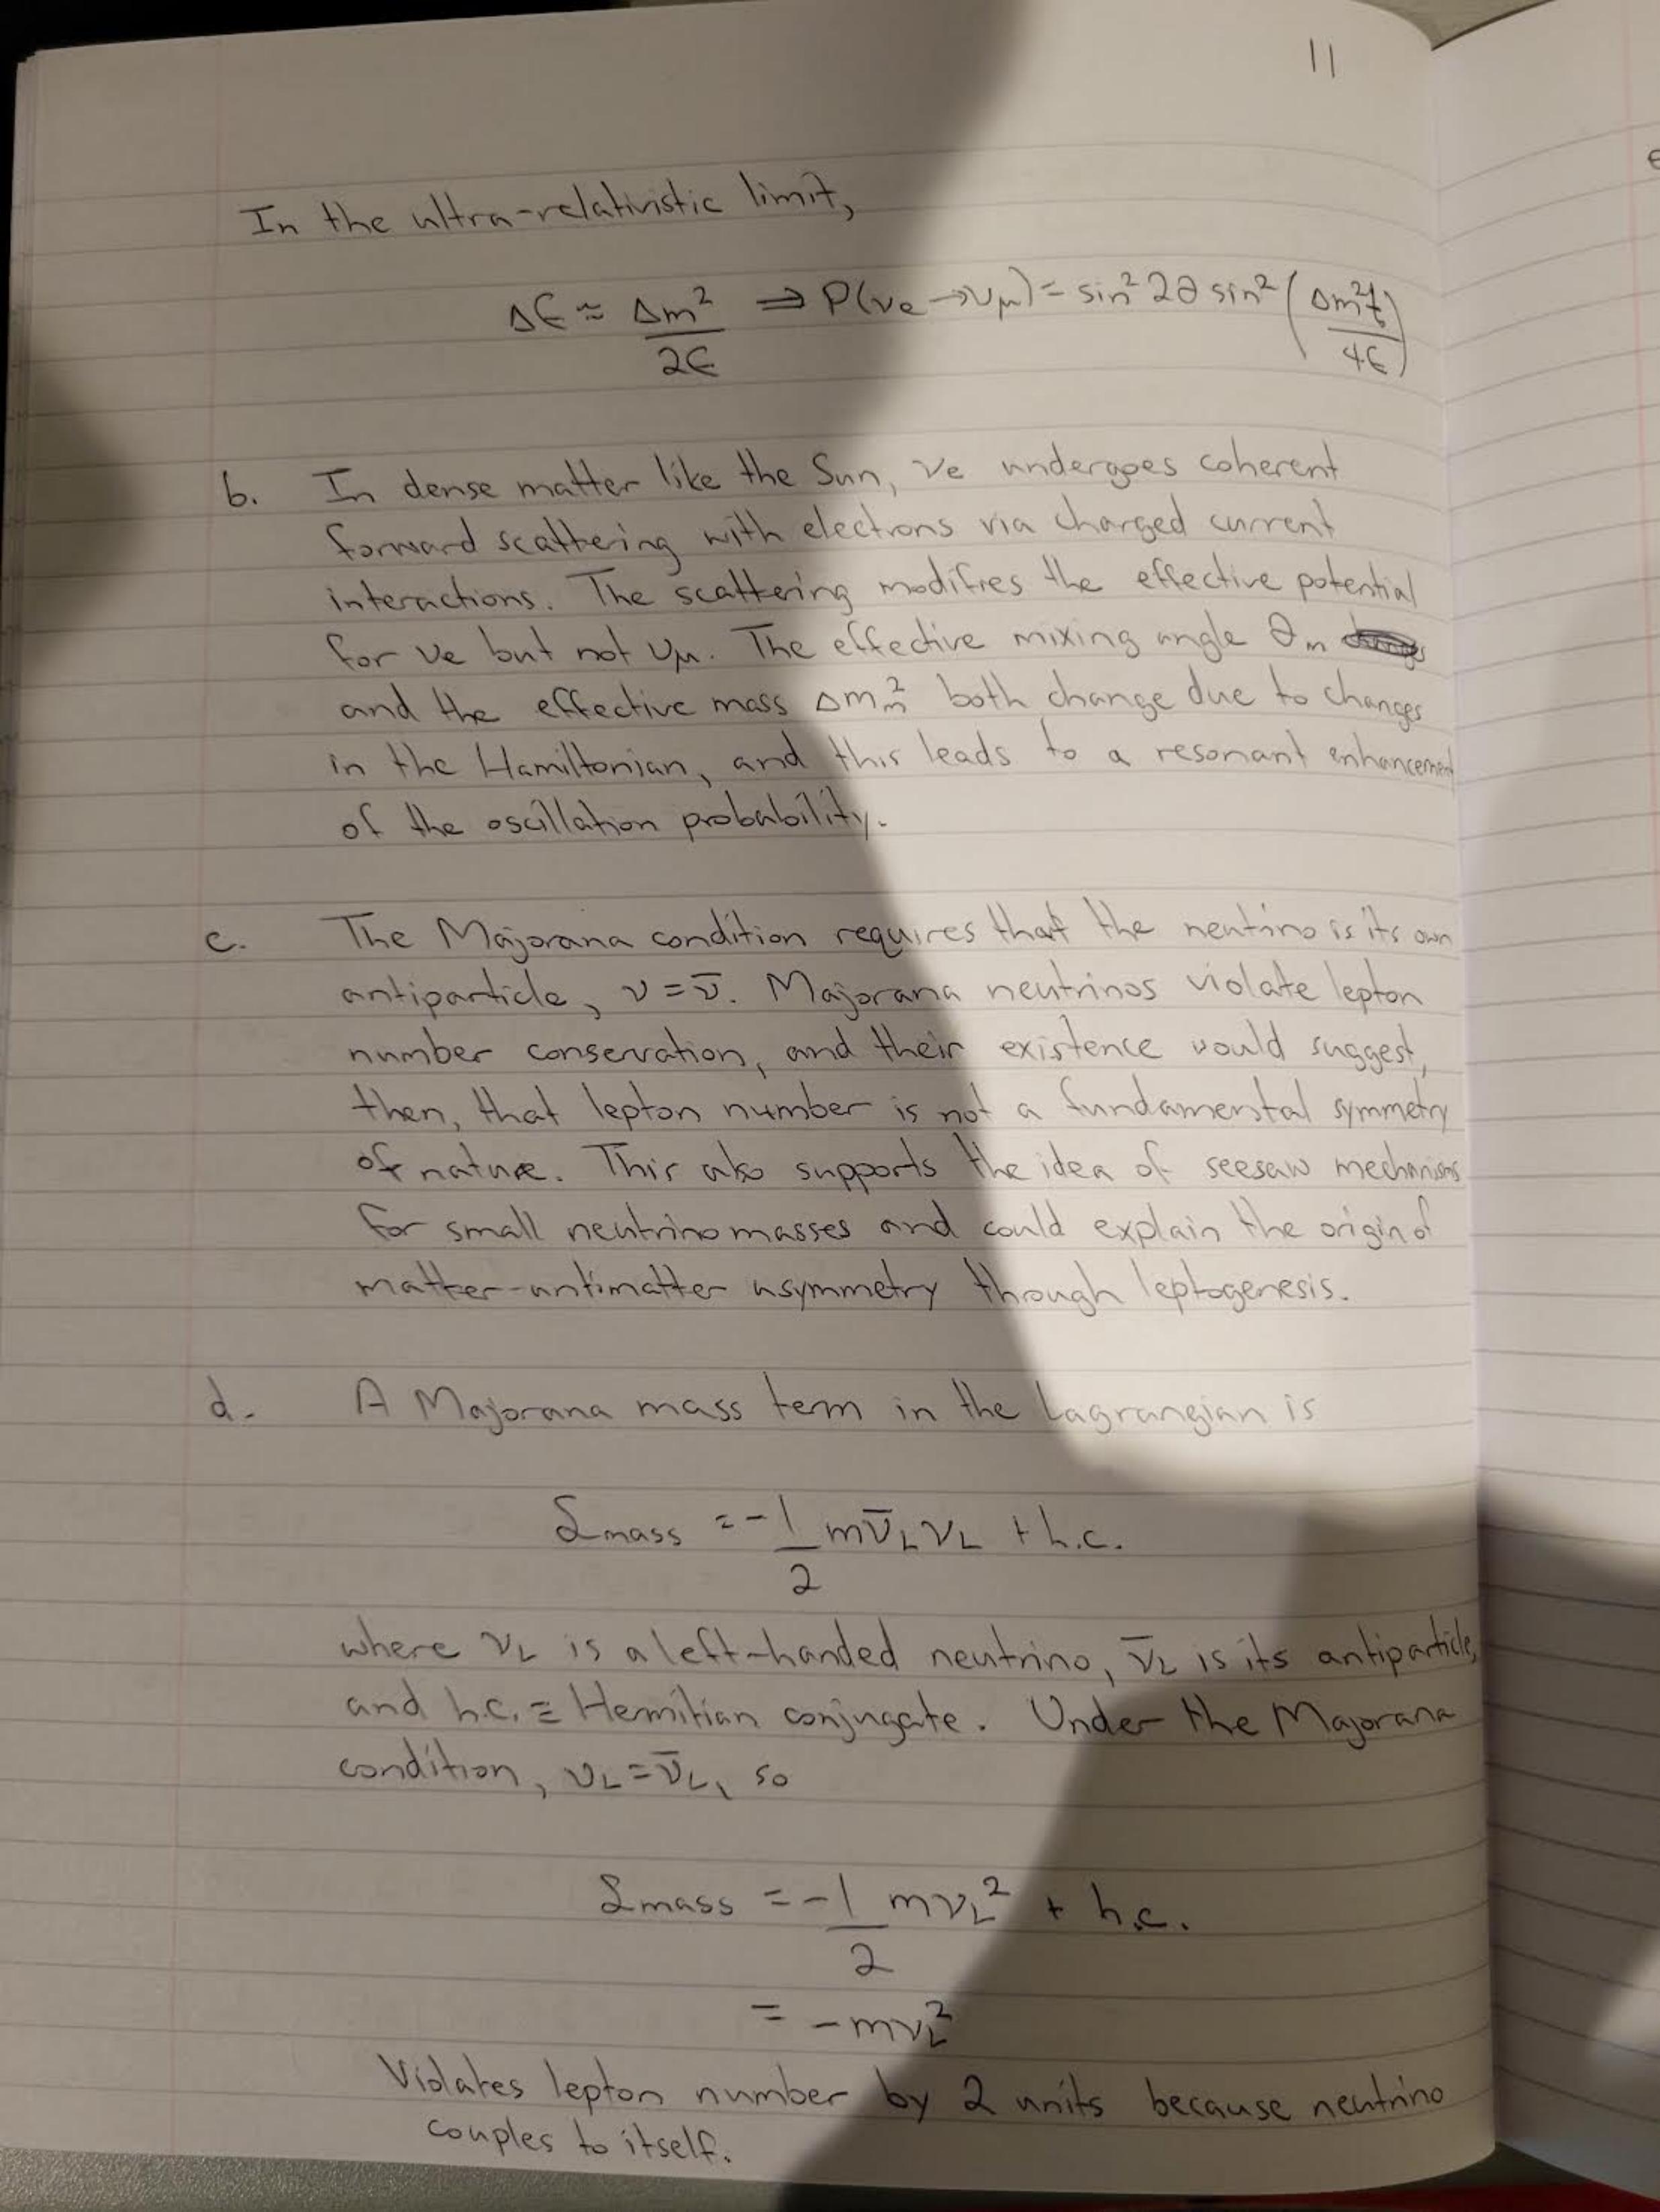 11
In the ultra-relativistic limit,
ΔE ≈ Δm²/2E ⇒ P(νe → νμ) = sin² 2θ sin² (Δm²t/4E)
b. In dense matter like the Sun, νe undergoes coherent
forward scattering with electrons via charged current
interactions. The scattering modifies the effective potential
for νe but not νμ. The effective mixing angle θm
and the effective mass Δm²m both change due to changes
in the Hamiltonian, and this leads to a resonant enhancement
of the oscillation probability.
c. The Majorana condition requires that the neutrino is its own
antiparticle, ν = ν̄. Majorana neutrinos violate lepton
number conservation, and their existence would suggest,
then, that lepton number is not a fundamental symmetry
of nature. This also supports the idea of seesaw mechanisms
for small neutrino masses and could explain the origin of
matter-antimatter asymmetry through leptogenesis.
d. A Majorana mass term in the Lagrangian is
ℒmass = -1/2 m ν̄L νL + h.c.
where νL is a left-handed neutrino, ν̄L is its antiparticle,
and h.c. ≡ Hermitian conjugate. Under the Majorana
condition, νL = ν̄L, so
ℒmass = -1/2 m νL² + h.c.
= -m νL²
Violates lepton number by 2 units because neutrino
couples to itself.